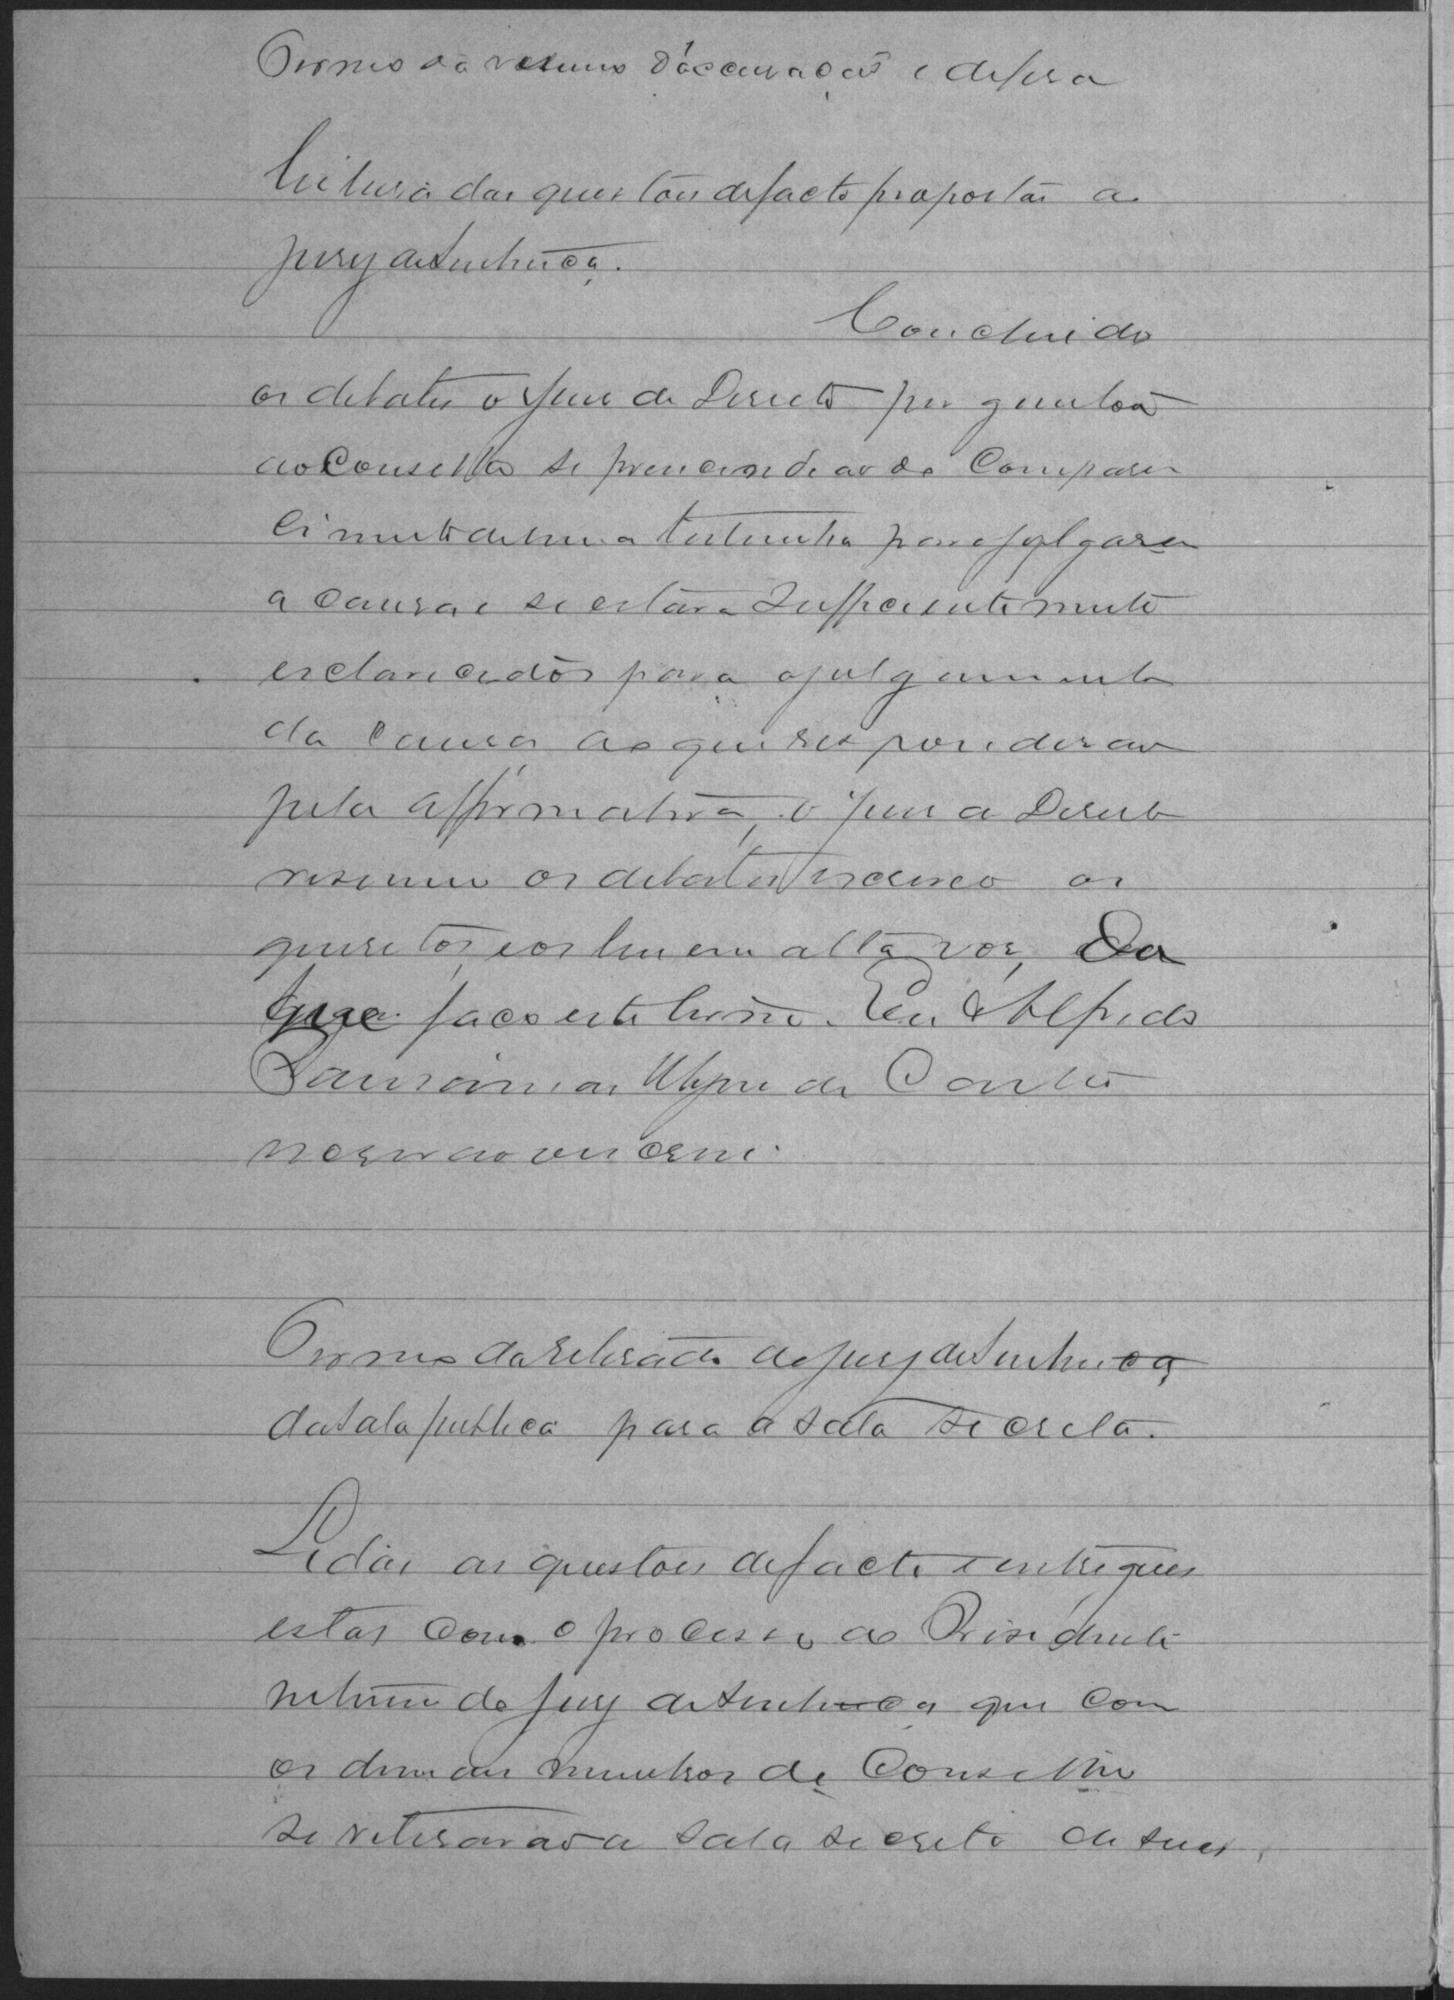 Termo do resumo d'accusação e defesa
leitura das questões de facto propostas ao
jury de Sentença.
Concluido
os debates o Juiz de Direito perguntou
ao Conselho se prescindeão do Compare
cimento de uma testemunha para julgarem
a causa e se estavão sufficientemente
esclarecidos para o julgamento
da causa ao que responderão
pela affirmativa, o Juiz de Direito
resumiu os debates escreveo os
quesitos e os leu em alta voz, Do
que faço este termo. Eu Alfredo
de Castro
escrivão escrevi.
Termo da retirada do jury de Sentença
da Sala publica para a sala secreta.
Lidas as questões de facto e entregues
estas com o processo ao Presidente
interino do jury de Sentença que com
os demais membros do Conselho
se retirarão a sala secreta de suas